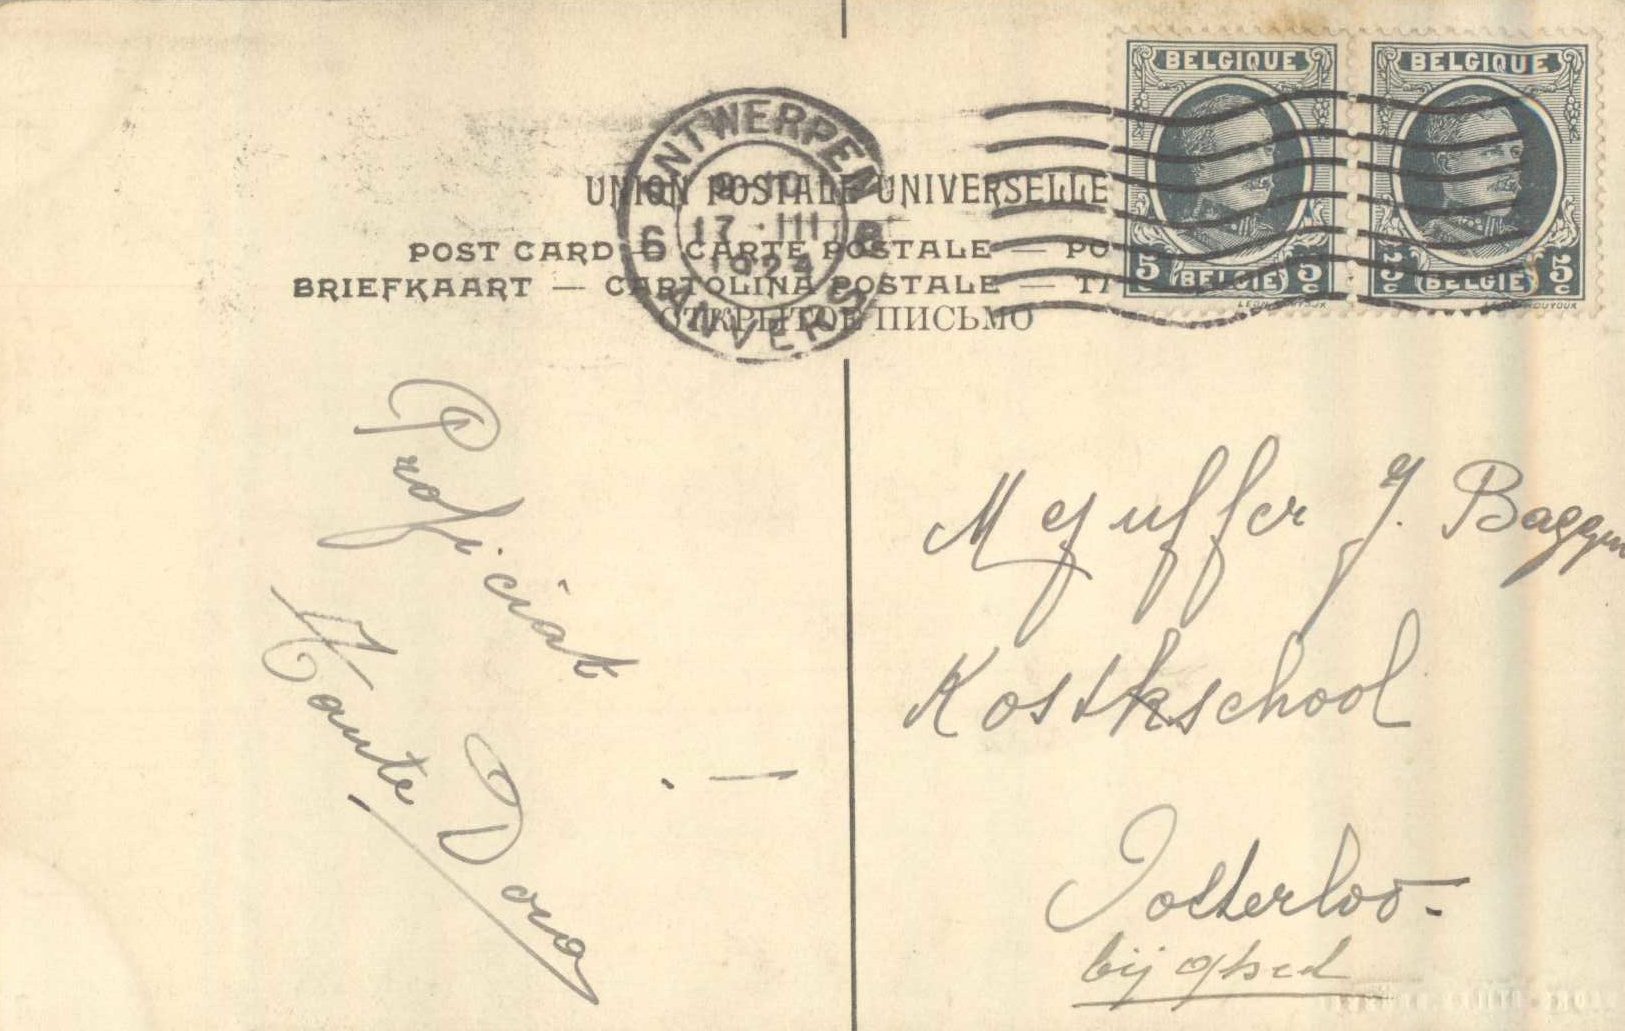 UNION POSTALE UNIVERSELLE
POST CARD — CARTE POSTALE — PO
BRIEFKAART — CARTOLINA POSTALE —
ОТКРЫТОЕ ПИСЬМО
ANTWERPEN
6
17 · III
ANVERS
BELGIQUE
5c 5c
BELGIË
BELGIQUE
5c 5c
BELGIË
Proficiat
Tante Doro
. —
Mejuffer J. Baggen
Kostschool
Oosterloo -
bij Gheel